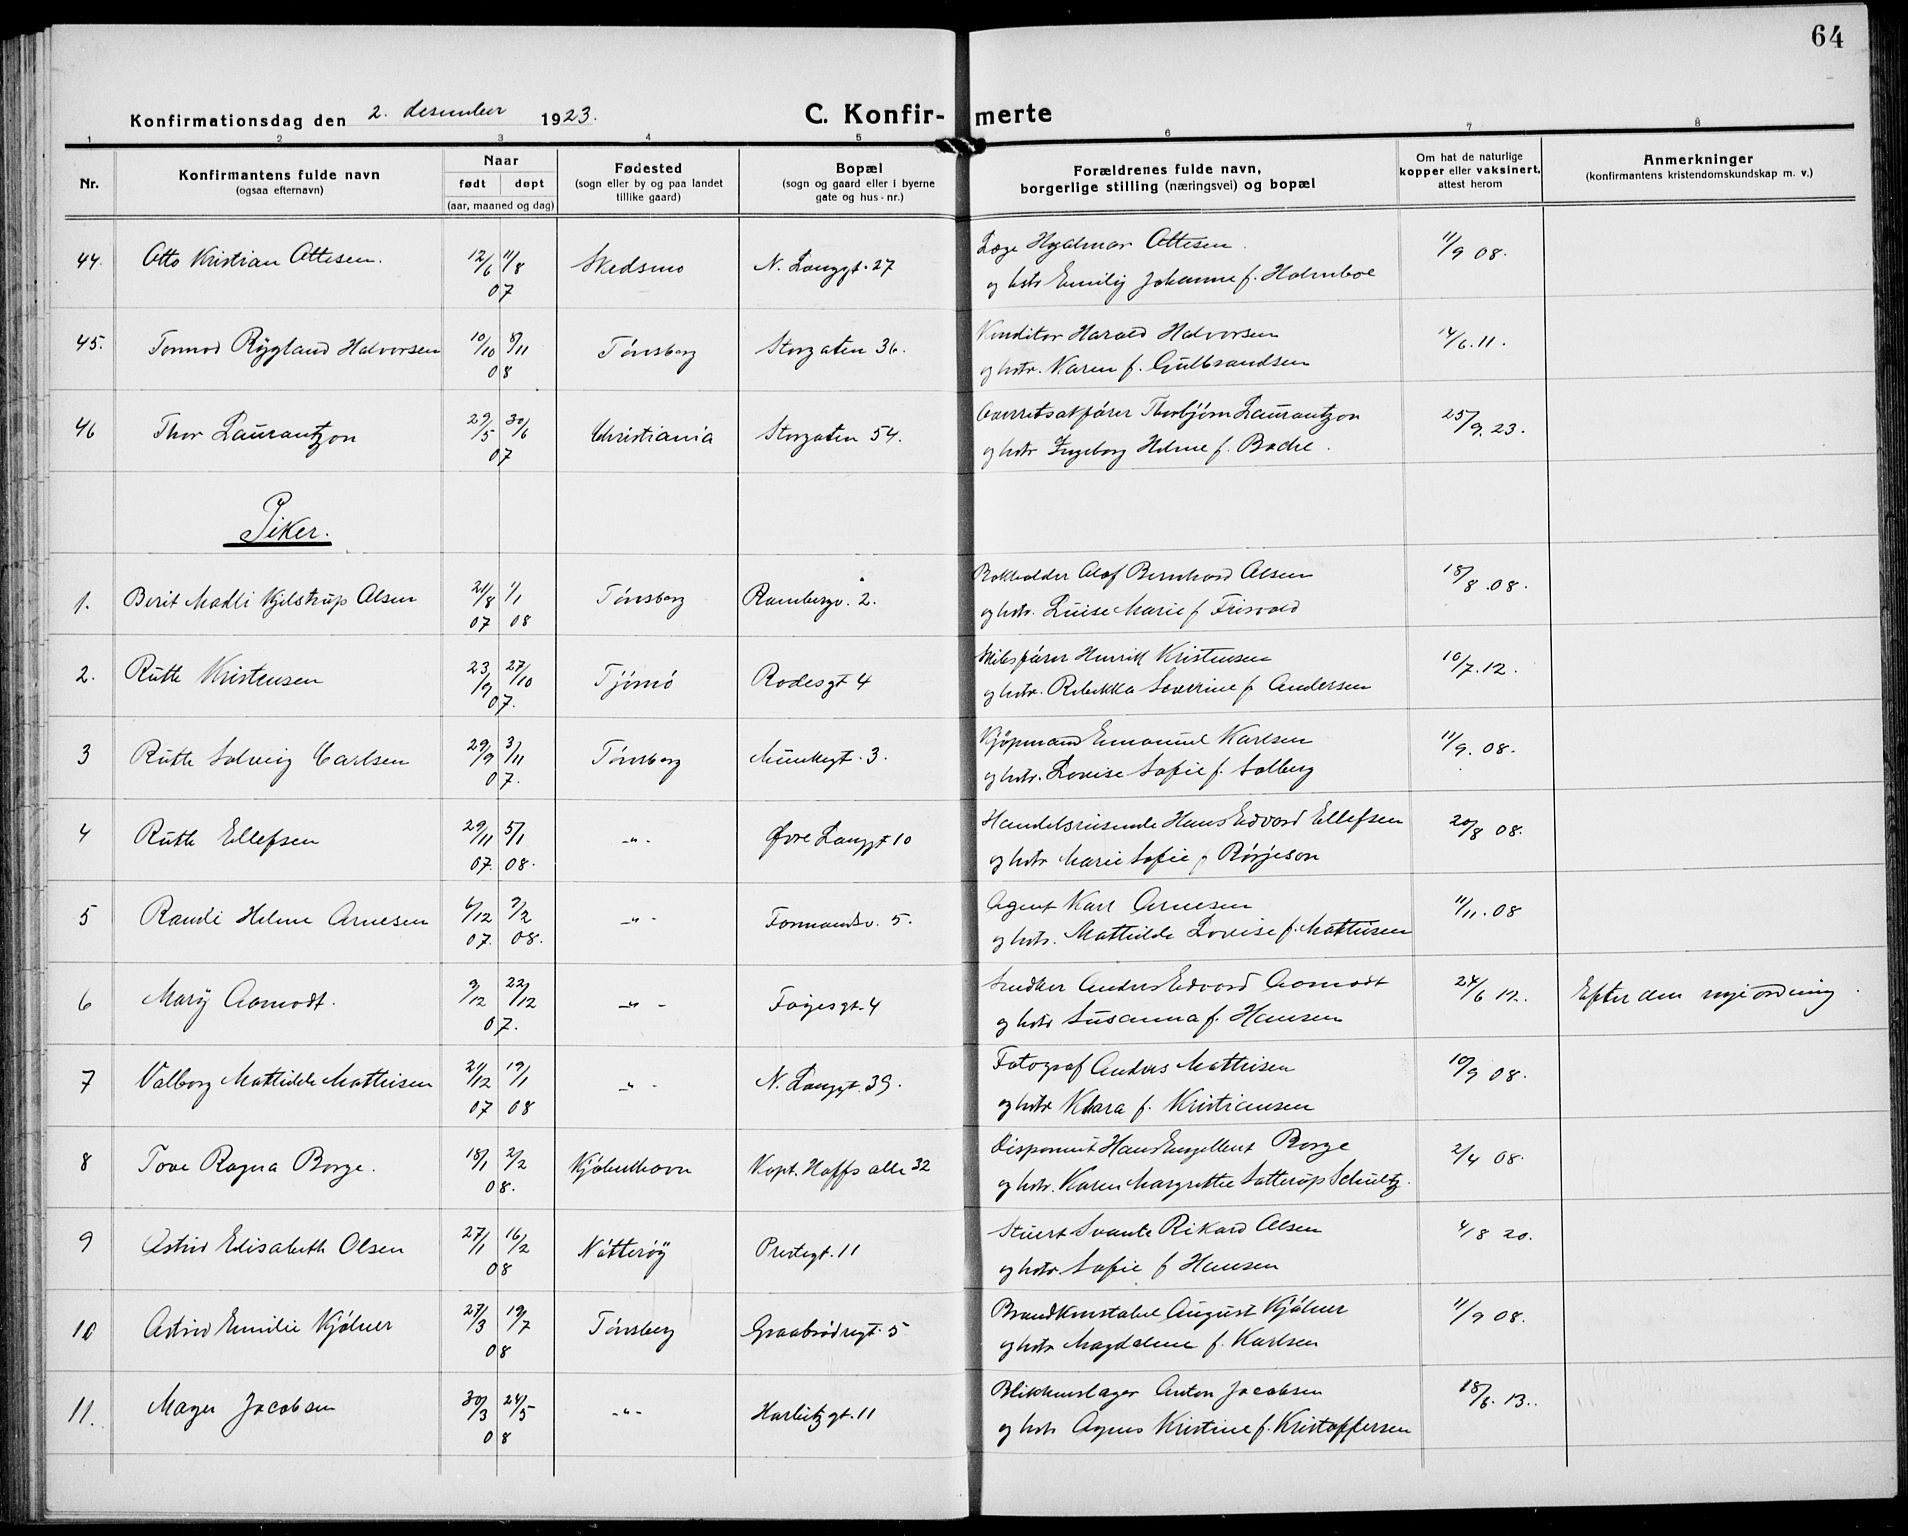 64
Konfirmationsdag den 2. desember 1923.
C. Konfir- merte
1 2 3 4 5 6 7 8
Nr.
Konfirmantens fulde navn
(ogsaa efternavn)
Naar
født døpt
(aar, maaned og dag)
Fødested
(sogn eller by og paa landet
tillike gaard)
Bopæl
(sogn og gaard eller i byerne
gate og hus-nr.)
Forældrenes fulde navn,
borgerlige stilling (næringsvei) og bopæl
Om hat de naturlige
kopper eller vaksinert,
attest herom
Anmerkninger
(konfirmantens kristendomskundskap m. v.)
44. Otto Kristian Ottesen. 12/6 11/8 07 Skedsmo N. Langgt. 27 Læge Hjalmar Ottesen. 11/9 08.
og hstr Emily Johanne f. Holmboe
45. Tormod Rygland Halvorsen 10/10 8/11 08 Tønsberg Storgaten 36. Konditor Harald Halvorsen 14/6. 11.
og hstr. Karen f. Gulbrandsen
46 Thor Laurantzon 29/5 30/6 07 Christiania Storgaten 54. Overretsakfører Thorbjørn Laurantzon 25/9. 23.
og hstr Ingeborg Helene f. Bache.
Piker.
1. Berit Madli Kjelstrup Olsen 21/8 07 1/1 08 Tønsberg Rambergv. 2. Bokholder Olaf Bernhard Olsen 18/8. 08.
og hstr. Luise Marie f Frisvold
2. Ruth Kristensen 23/9 27/10 07. Tjømø Rodesgt 4 Skibsfører Henrik Kristensen 10/7. 12.
og hstr. Rebekka Severine f Andersen
3 Ruth Solveig Carlsen 29/9 3/11 07. Tønsberg Munkegt. 3. Kjøpmand Emanuel Karlsen 11/9. 08.
og hstr. Lovise Sofie f. Solberg
4 Ruth Ellefsen 29/11 07. 5/1 08. -"- Øvre Langgt 10 Handelsreisende Hans Edvard Ellefsen 20/8 08.
og hstr Marie Sofie f Børjeson
5 Randi Helene Arnesen 6/12 07. 9/2 08. -"- Formandsv. 5. Agent Karl Arnesen 11/11. 08
og hstr. Mathilde Lovise f. Mathisen
6 Mary Aamodt. 9/12 22/12 07. -"- Føyesgt. 4 Snedker Anders Edvard Aamodt 24/6 12. Efter den nye ordning.
og hstr Susanna f. Hansen
7 Valborg Mathilde Mathisen 21/12 07 19/1 08 -"- N. Langgt. 39. Fotograf Anders Mathisen 10/9 08.
og hstr Klara f. Kristiansen
8 Tove Ragna Borge. 18/1 2/2 08. Kjøbenhavn Kapt. Hoffs alle 32 Disponent Hans Engelbert Borge 2/4 08.
og hstr. Karen Margrethe Satterup Schultz.
9 Astrid Elisabeth Olsen 27/1 16/2 08 Nøtterøy Prestegt. 11 Stuert Svante Rikard Olsen 4/8 20.
og hstr. Sofie f Hansen
10 Astrid Emilie Kjølner 27/3 19/7 08 Tønsberg Graabrødregt. 5 Brandkonstabel August Kjølner 11/9 08.
og hstr Magdalene f. Karlsen
11. Mager Jacobsen 30/3 24/5 08 -"- Harbitzgt. 11 Blikkenslager Anton Jacobsen 18/6. 13.
og hstr Agnes Kristine f. Kristoffersen